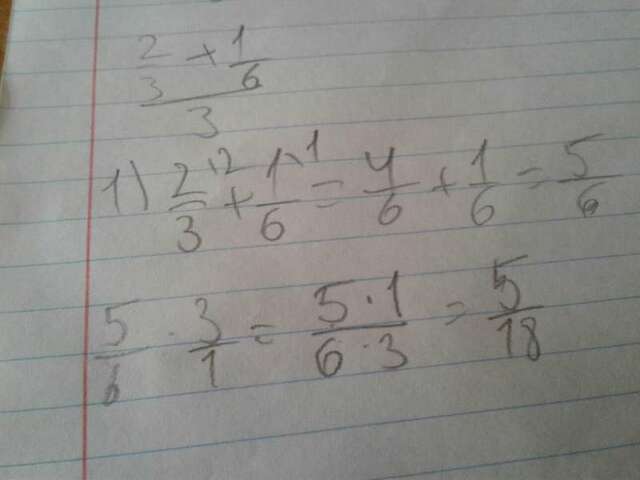 2/3 + 1/6
3
1) 2/3 \2 + 1/6 \1 = 4/6 + 1/6 = 5/6
5/6 · 3/1 = 5·1/6·3 = 5/18